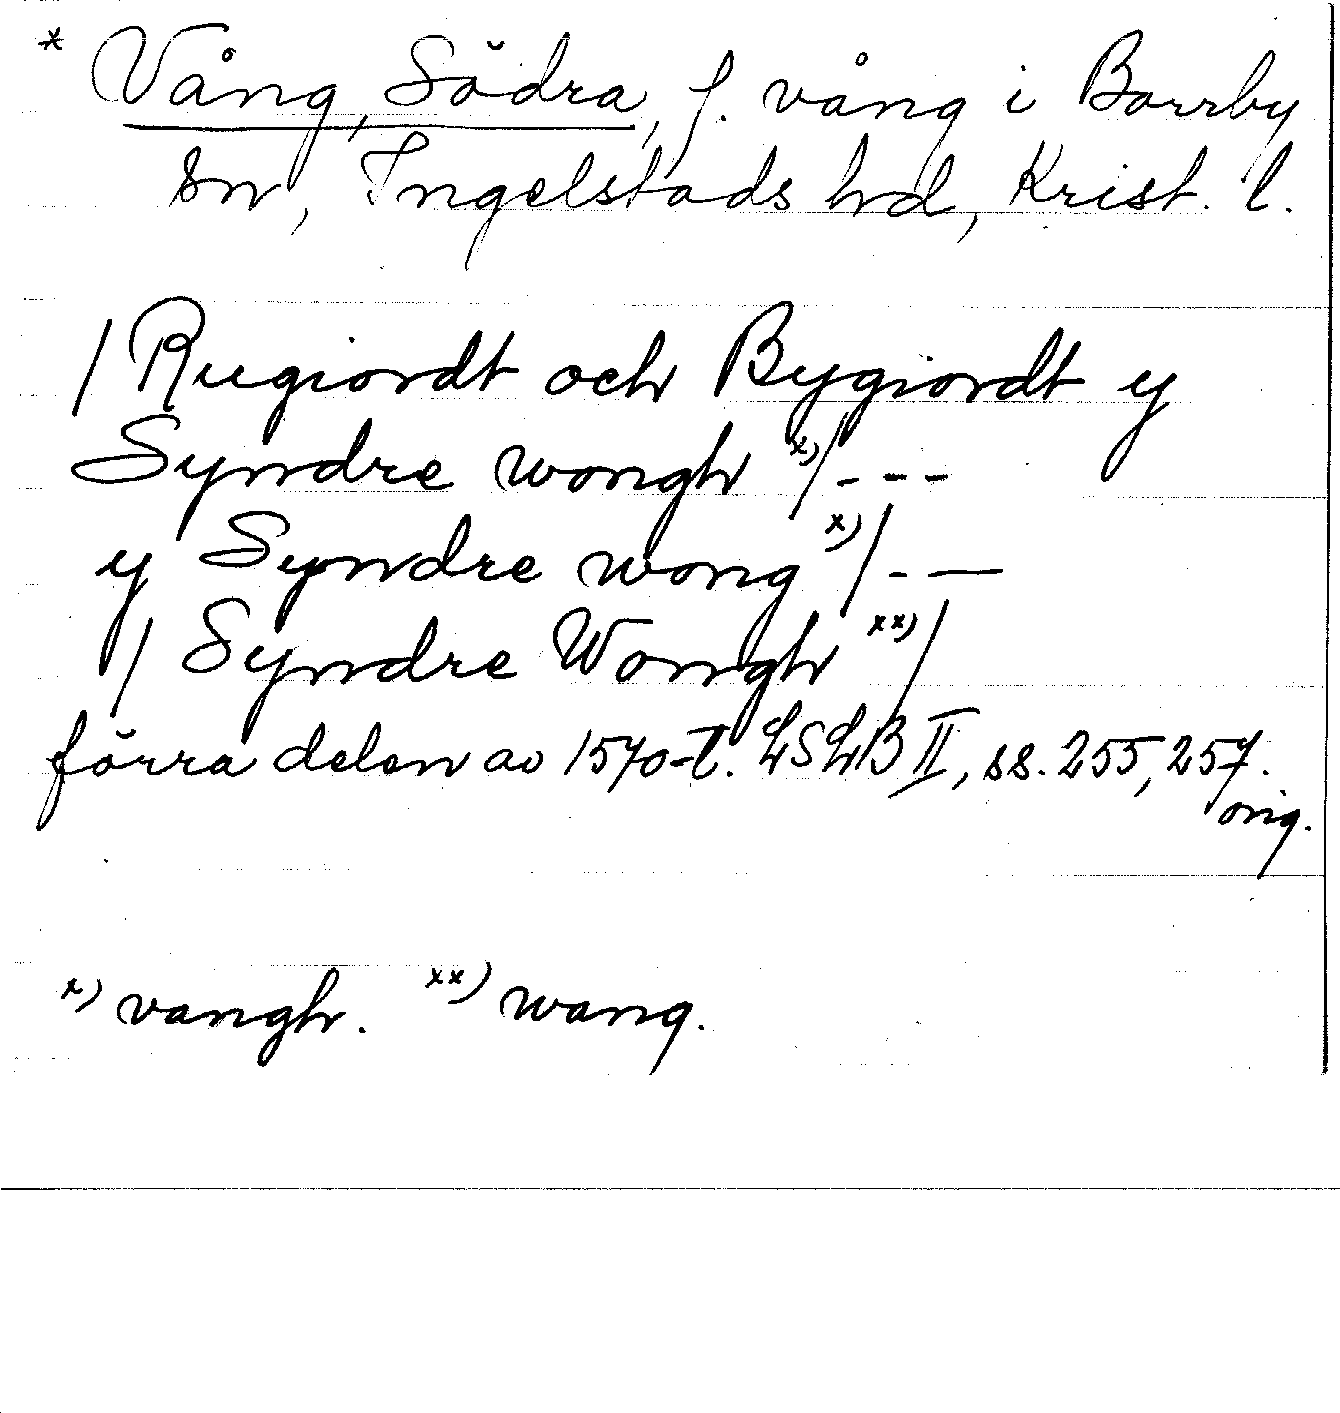 * Vång, Södra, f. vång i Borrby
sn, Ingelstads hd, Krist. l.
/ Rugiordt och Bygiordt y
Syndre wongh x) / - - -
y Syndre wong x) / - —
/ Syndre Wongh xx) /
förra delen av 1570-t. LSLB II, ss. 255, 257.
orig.
x) vangh. xx) wang.